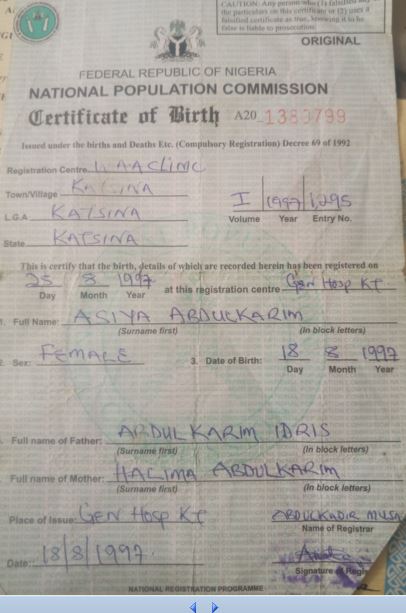 CAUTION: Any person who (1) falsifies any
the particulars on this certificate or (2) uses a
falsified certificate as true, knowing it to be
false is liable to prosecution.
ORIGINAL
FEDERAL REPUBLIC OF NIGERIA
NATIONAL POPULATION COMMISSION
Certificate of Birth A20 1380799
Issued under the births and Deaths Etc. (Compulsory Registration) Decree 69 of 1992
Registration Centre
Town/Village KATSINA
I 1997 1,295
Volume Year Entry No.
L.G.A KATSINA
State KATSINA
This is certify that the birth, details of which are recorded herein has been registered on
25 8 1997 at this registration centre Gen Hosp KT
Day Month Year
1. Full Name: ASIYA ABDULKARIM
(Surname first) (In block letters)
2. Sex: FEMALE 3. Date of Birth: 18 8 1997
Day Month Year
Full name of Father: ABDULKARIM IDRIS
(Surname first) (In block letters)
Full name of Mother: HALIMA ABDULKARIM
(Surname first) (In block letters)
Place of Issue: Gen Hosp KT ABDULKADIR MUSA
Name of Registrar
Date: 18/8/1997
Signature of Regi
NATIONAL REGISTRATION PROGRAMME